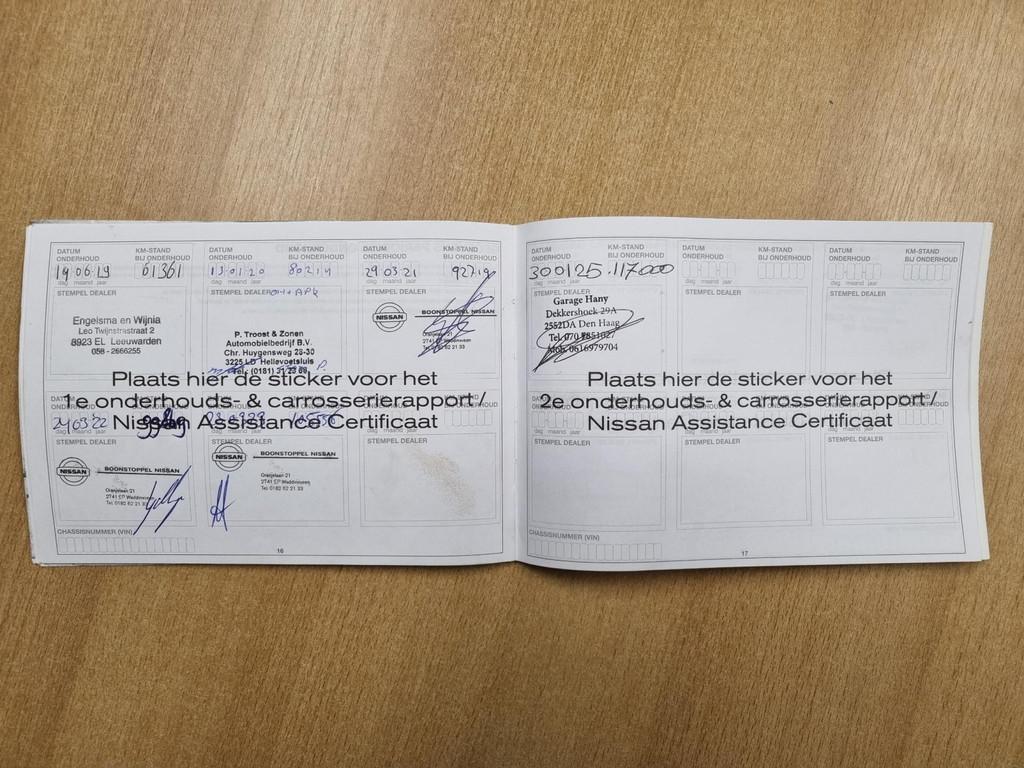 DATUM ONDERHOUD KM-STAND BIJ ONDERHOUD
19 06 19 61361
dag maand jaar
STEMPEL DEALER
Engelsma en Wijnia
Leo Twijnstrastraat 2
8923 EL Leeuwarden
058 - 2666255
DATUM ONDERHOUD KM-STAND BIJ ONDERHOUD
13 01 20 80214
dag maand jaar
STEMPEL DEALER
P. Troost & Zonen
Automobielbedrijf B.V.
Chr. Huygensweg 28-30
3225 LD Hellevoetsluis
DATUM ONDERHOUD KM-STAND BIJ ONDERHOUD
29 03 21 92719
dag maand jaar
STEMPEL DEALER
NISSAN
BOONSTOPPEL NISSAN
Plaats hier de sticker voor het
1e onderhouds- & carrosserierapport /
Nissan Assistance Certificaat
24 03 22
STEMPEL DEALER
NISSAN
BOONSTOPPEL NISSAN
Oranjelaan 21
2741 EP Waddinxveen
Tel. 0182 62 21 33
STEMPEL DEALER
NISSAN
BOONSTOPPEL NISSAN
Oranjelaan 21
2741 EP Waddinxveen
Tel. 0182 62 21 33
STEMPEL DEALER
CHASSISNUMMER (VIN)
16
DATUM ONDERHOUD KM-STAND BIJ ONDERHOUD
300125 117000
STEMPEL DEALER
Garage Hany
Dekkershoek 29A
2552DA Den Haag
Tel. 070 7851027
Mob. 0616979704
DATUM ONDERHOUD KM-STAND BIJ ONDERHOUD
dag maand jaar
STEMPEL DEALER
DATUM ONDERHOUD KM-STAND BIJ ONDERHOUD
dag maand jaar
STEMPEL DEALER
Plaats hier de sticker voor het
2e onderhouds- & carrosserierapport /
Nissan Assistance Certificaat
STEMPEL DEALER
STEMPEL DEALER
STEMPEL DEALER
CHASSISNUMMER (VIN)
17